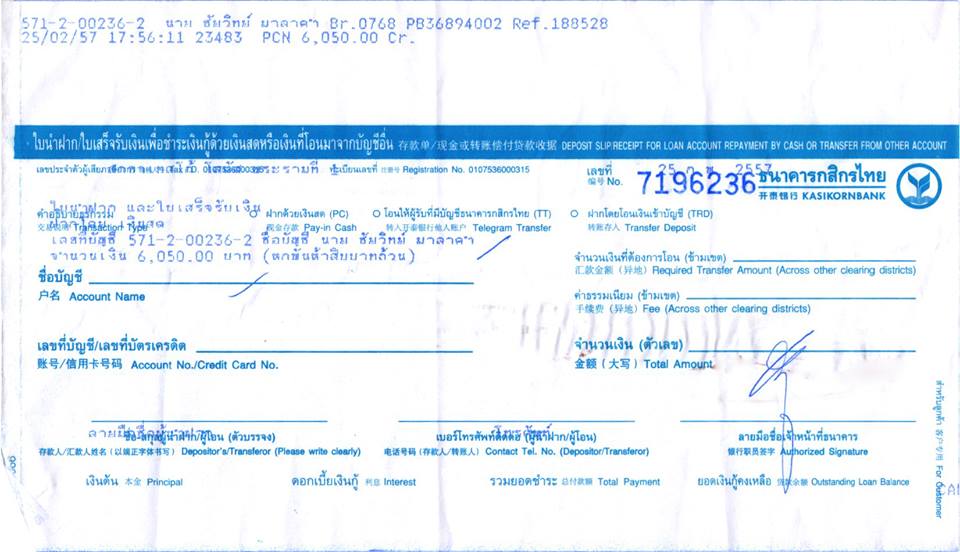 571-2-00236-2 นาย ชัยวิทย์ มาลาคำ Br.0768 PB36894002 Ref.188528
25/02/57 17:56:11 23483 PCN 6,050.00 Cr.
ใบนำฝาก/ใบเสร็จรับเงินเพื่อชำระเงินกู้ด้วยเงินสดหรือเงินที่โอนมาจากบัญชีอื่น 存款单/现金或转账偿付贷款收据 DEPOSIT SLIP/RECEIPT FOR LOAN ACCOUNT REPAYMENT BY CASH OR TRANSFER FROM OTHER ACCOUNT
เลขประจำตัวผู้เสียภาษีอากร Tax I.D. 0107536000315 ทะเบียนเลขที่ 注册号 Registration No. 0107536000315
พระรามที่
เลขที่ 25 ก.พ. 2557
编号 No. 7196236
ธนาคารกสิกรไทย
开泰银行 KASIKORNBANK
ใบนำฝาก และใบเสร็จรับเงิน
คำอธิบายธุรกรรม ฝากด้วยเงินสด (PC) โอนให้ผู้รับที่มีบัญชีธนาคารกสิกรไทย (TT) ฝากโดยโอนเงินเข้าบัญชี (TRD)
交易说明 Transaction Type 现金存款 Pay-in Cash 转入开泰银行他人账户 Telegram Transfer 转账存入 Transfer Deposit
ฝากโดย เงินสด
เลขที่บัญชี 571-2-00236-2 ชื่อบัญชี นาย ชัยวิทย์ มาลาคำ
จำนวนเงิน 6,050.00 บาท (หกพันห้าสิบบาทถ้วน)
จำนวนเงินที่ต้องการโอน (ข้ามเขต)
汇款金额 (异地) Required Transfer Amount (Across other clearing districts)
ชื่อบัญชี
户名 Account Name
ค่าธรรมเนียม (ข้ามเขต)
手续费 (异地) Fee (Across other clearing districts)
เลขที่บัญชี/เลขที่บัตรเครดิต
账号/信用卡号码 Account No./Credit Card No.
จำนวนเงิน (ตัวเลข)
金额 (大写) Total Amount
ลายมือชื่อผู้นำฝาก
ชื่อ-สกุลผู้นำฝาก/ผู้โอน (ตัวบรรจง)
存款人/汇款人姓名 (以端正字体书写) Depositor's/Transferor (Please write clearly)
โทรศัพท์
เบอร์โทรศัพท์ติดต่อ (ผู้นำฝาก/ผู้โอน)
电话号码 (存款人/转账人) Contact Tel. No. (Depositor/Transferor)
ลายมือชื่อเจ้าหน้าที่ธนาคาร
银行职员签字 Authorized Signature
เงินต้น 本金 Principal ดอกเบี้ยเงินกู้ 利息 Interest รวมยอดชำระ 总付款额 Total Payment ยอดเงินกู้คงเหลือ 贷款余额 Outstanding Loan Balance
สำหรับลูกค้า 客户专用 For Customer